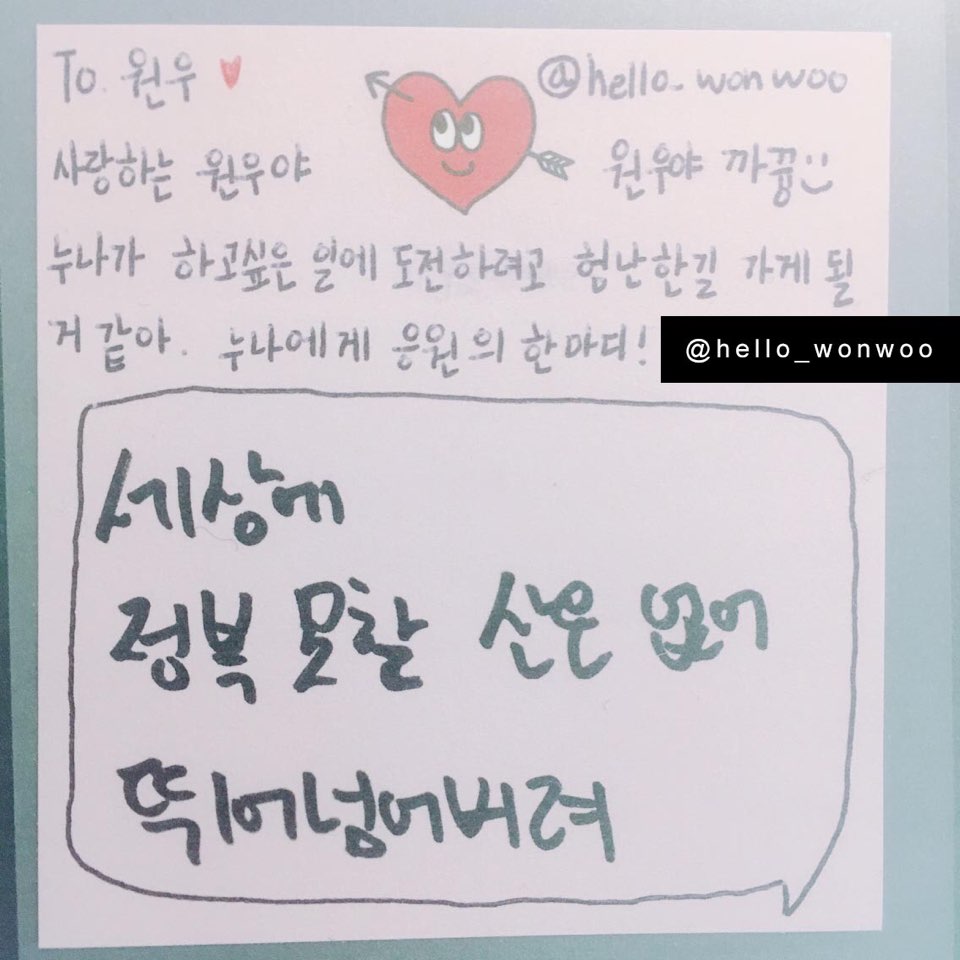 To. 원우 ♥ @hello_wonwoo
사랑하는 원우야 원우야 까꿍:)
누나가 하고싶은 일에 도전하려고 험난한길 가게 될
거 같아. 누나에게 응원의 한마디!
@hello_wonwoo
세상에
정복 못할 산은 없어
뛰어넘어버려